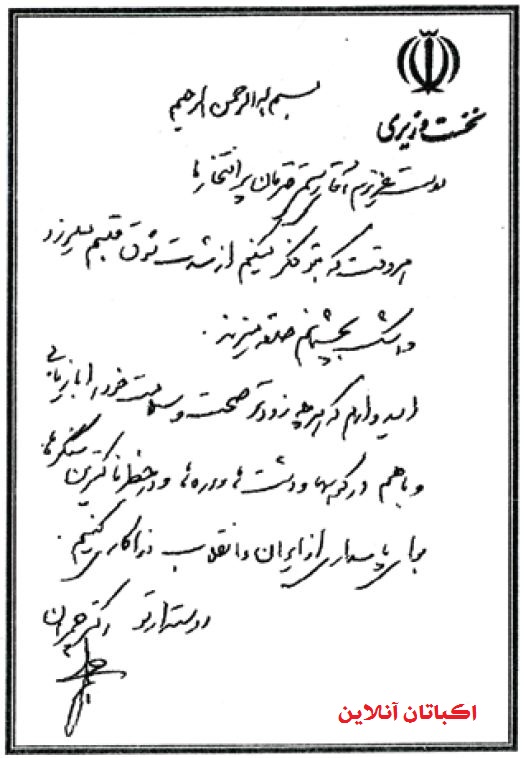 بسم الله الرحمن الرحیم
نخست وزیری
دوست عزیزم آقای رستمی قهرمان پر افتخار ما
هر وقت که بتو فکر میکنم از شدت شوق قلبم میلرزد
و اشک بچشمانم حلقه میزند.
امیدوارم که هر چه زودتر صحت و سلامت خود را بازیابی
و با هم در کوهها و دشت ها و دره ها و در خطرناکترین سنگرها
برای پاسداری از ایران و انقلاب فداکاری کنیم.
دوستدار تو دکتر چمران
اکباتان آنلاین